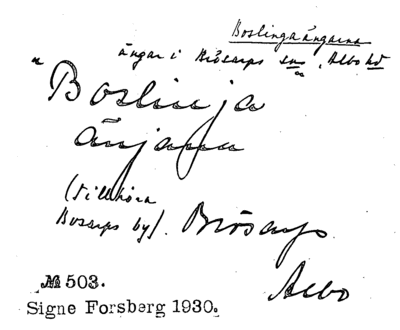 Boslingaängarna
ängar i Brösarps sn, Albo hd
"Boslinja
änjana
(tillhöra
Bosarps by). Brösarp
Albo
№ 503.
Signe Forsberg 1930.